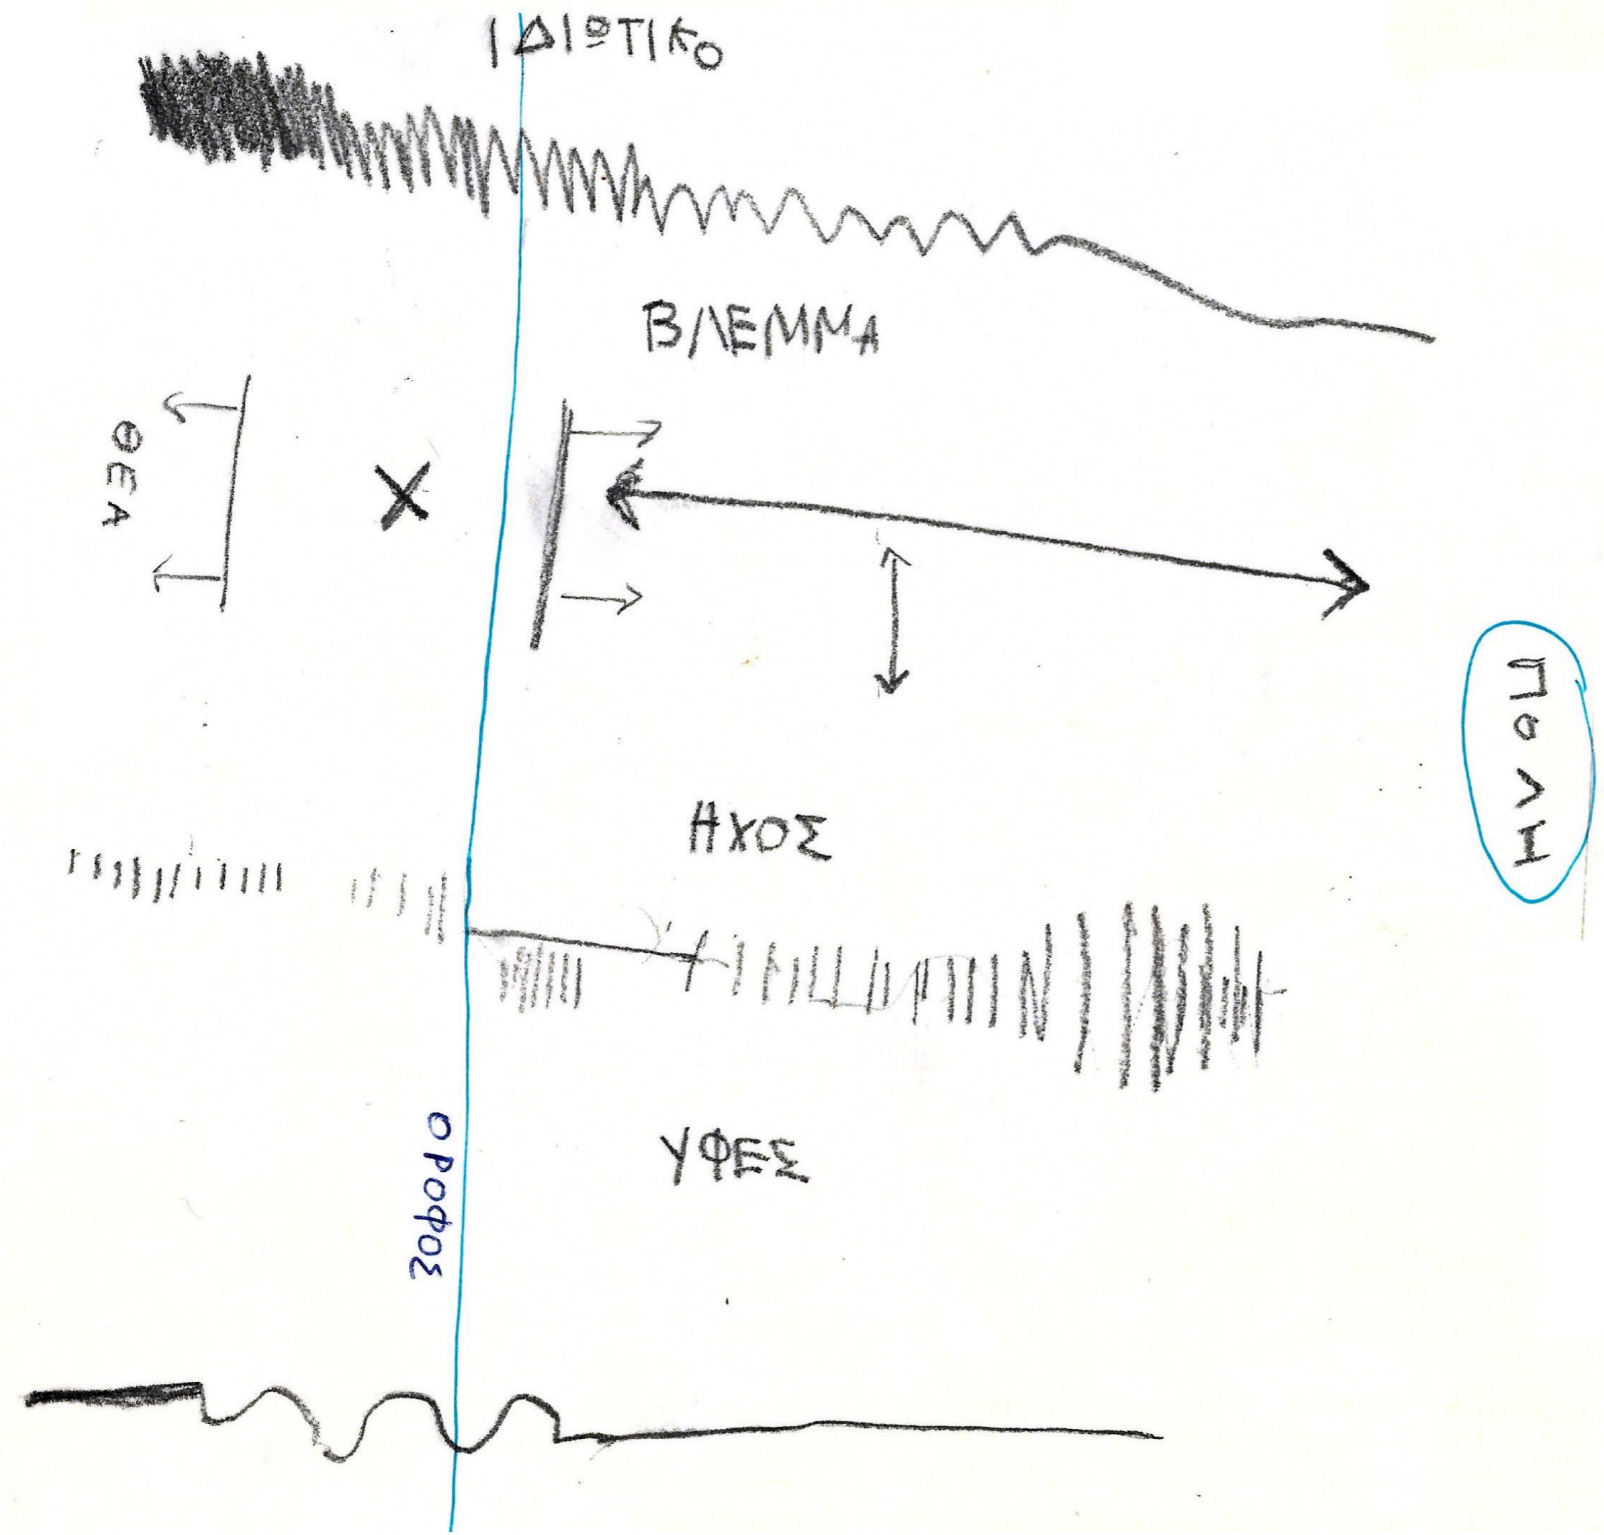 ΙΔΙΩΤΙΚΟ
ΒΛΕΜΜΑ
ΘΕΑ
ΠΟΛΗ
ΗΧΟΣ
ΟΡΟΦΟΣ
ΥΦΕΣ